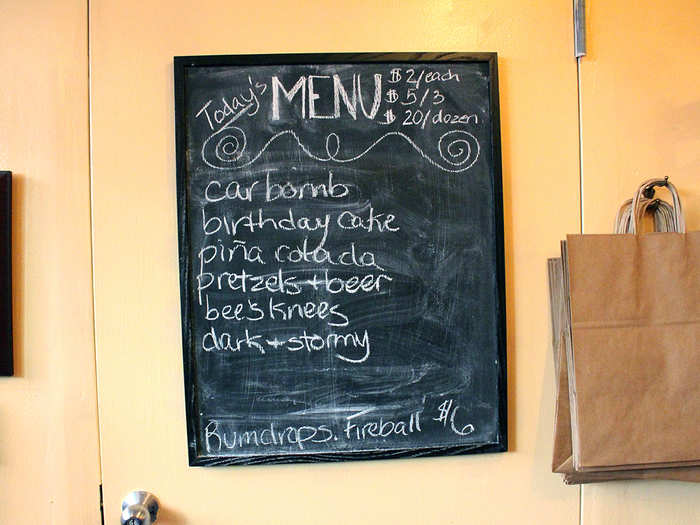 Today's MENU $2/each
$5/3
$20/dozen
car bomb
birthday cake
piña colada
pretzels + beer
bee's knees
dark + stormy
Rumdrops. Fireball $6